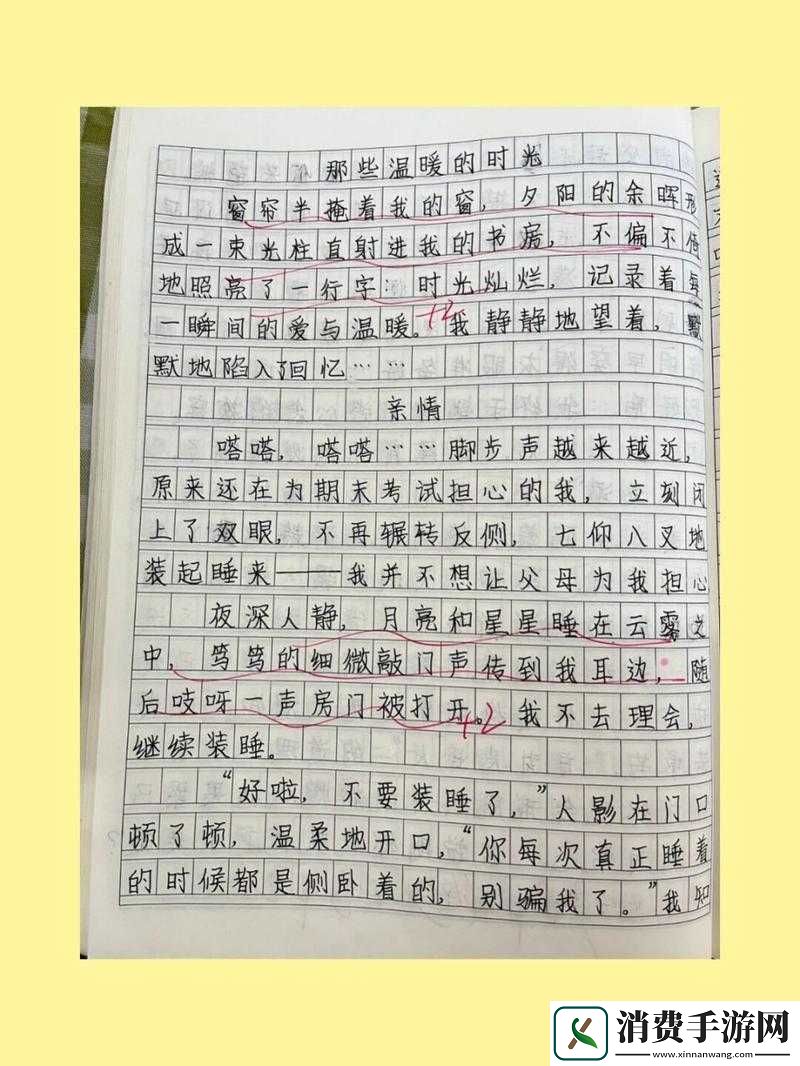 那些温暖的时光
窗帘半掩着我的窗，夕阳的余晖形
成一束光柱直射进我的书房，不偏不倚
地照亮了一行字：时光灿烂，记录着每
一瞬间的爱与温暖。+2我静静地望着，默
默地陷入了回忆……
亲情
嗒嗒，嗒嗒……脚步声越来越近，
原来还在为期末考试担心的我，立刻闭
上了双眼，不再辗转反侧，七仰八叉地
装起睡来——我并不想让父母为我担心
夜深人静，月亮和星星睡在云雾之
中，笃笃的细微敲门声传到我耳边，随
后吱呀一声房门被打开。+2我不去理会，
继续装睡。
“好啦，不要装睡了，”人影在门口
顿了顿，温柔地开口，“你每次真正睡着
的时候都是侧卧着的，别骗我了。”我知
消费手游网
www.xinnanwang.com